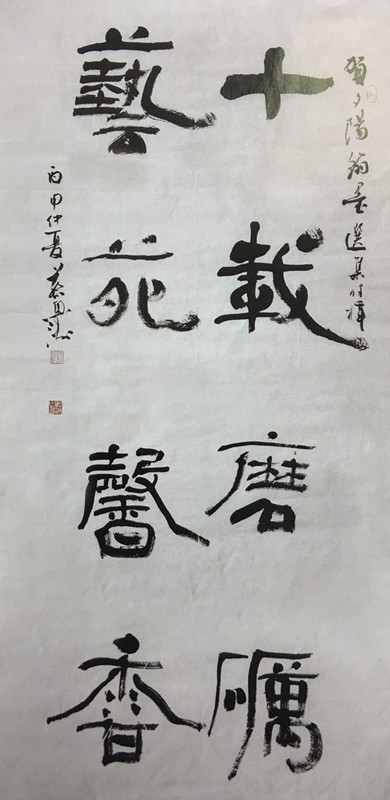 賀夕陽翰墨選集付梓
十載磨礪
藝苑馨香
丙申仲夏